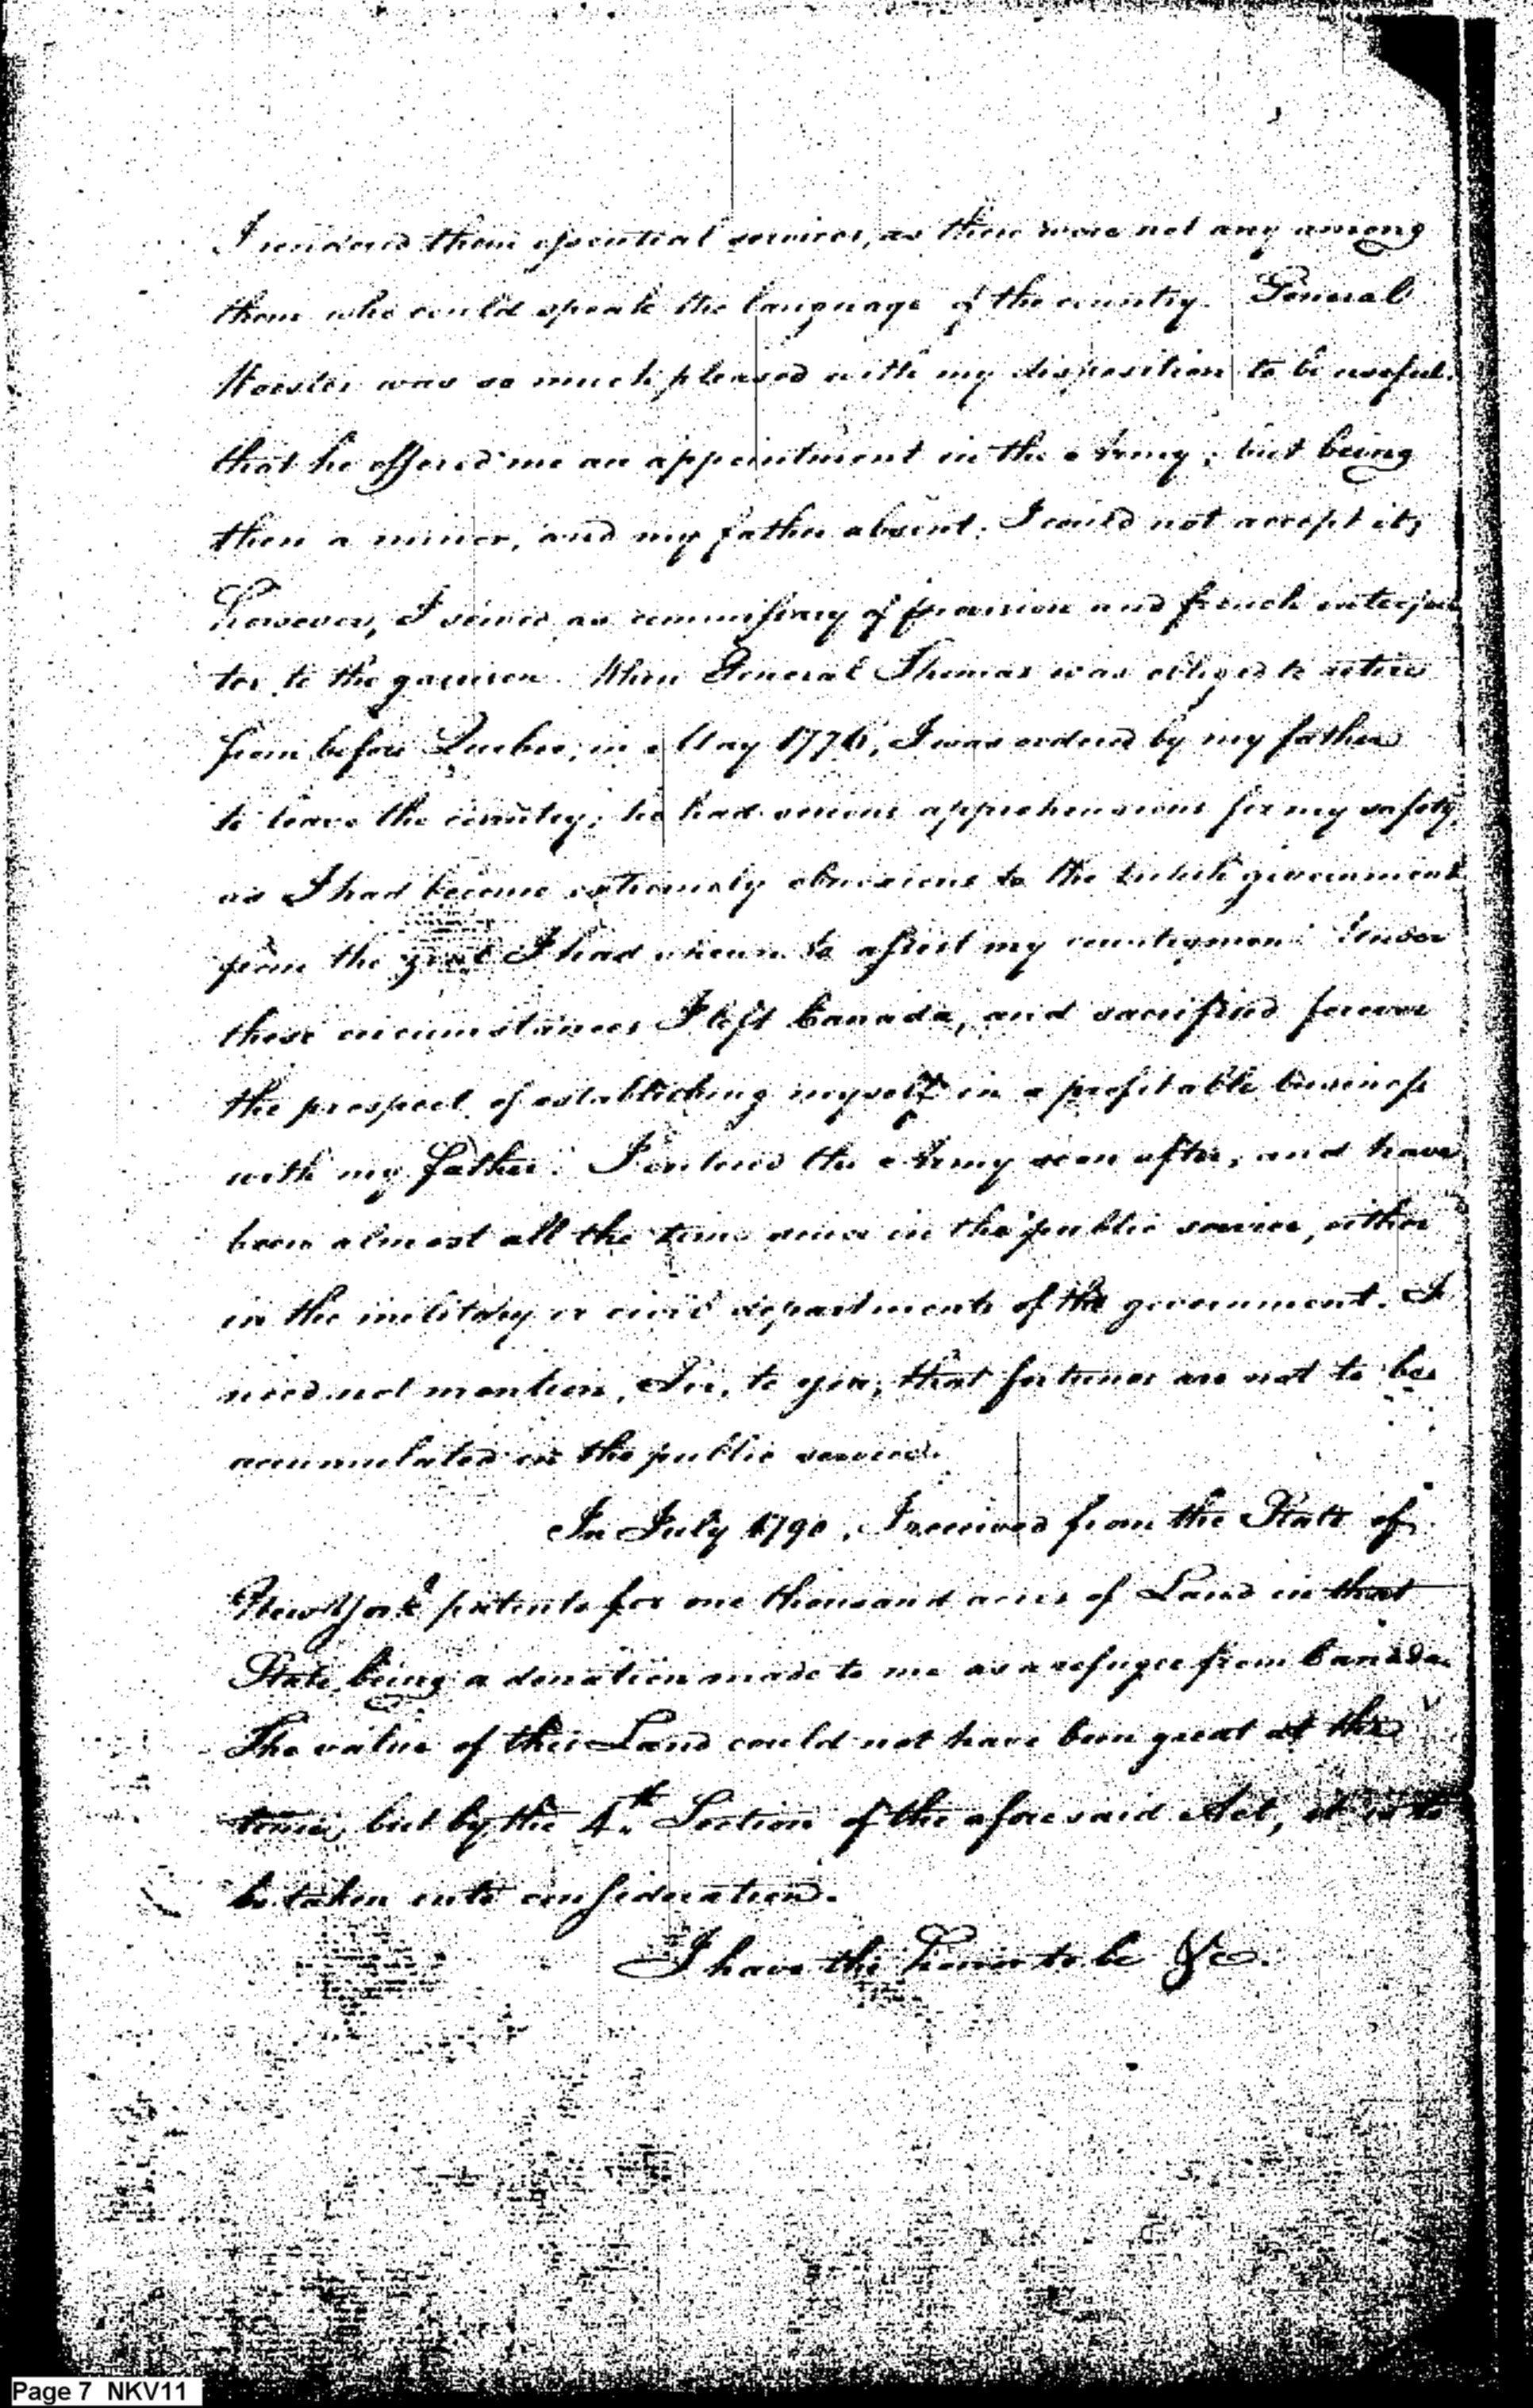 I rendered them essential services, as there were not any among
them who could speak the language of the country. General
Wooster was so much pleased with my disposition to be useful.
that he offered me an appointment in the Army; but being
then a minor, and my father absent, I could not accept it;
however, I served as commissary of and french interpre
ter to the garrison. When General Thomas was obliged to retire
from before Quebec, in May 1776, I was ordered by my father
to leave the country; he had serious apprehensions for my safety,
as I had become extremely obnoxious to the british government
from the zeal I had shewn to assist my countrymen. Under
these circumstances I left Canada, and sacrificed forever
the prospect of establishing myself in a profitable business
with my father. I entered the Army soon after, and have
been almost all the time since in the public service, either
in the military or civil departments of the government. I
need not mention, Sir, to you, that fortunes are not to be
accumulated in the public service.
In July 1790, I received from the State of
New York patents for one thousand acres of Land in that
State, being a donation made to me as a refugee from Canada.
The value of this Land could not have been great at the
time, but by the 4th. Section of the aforesaid Act, it is to
be taken into consideration.
I have the honor to be &c.
Page 7 NKV11